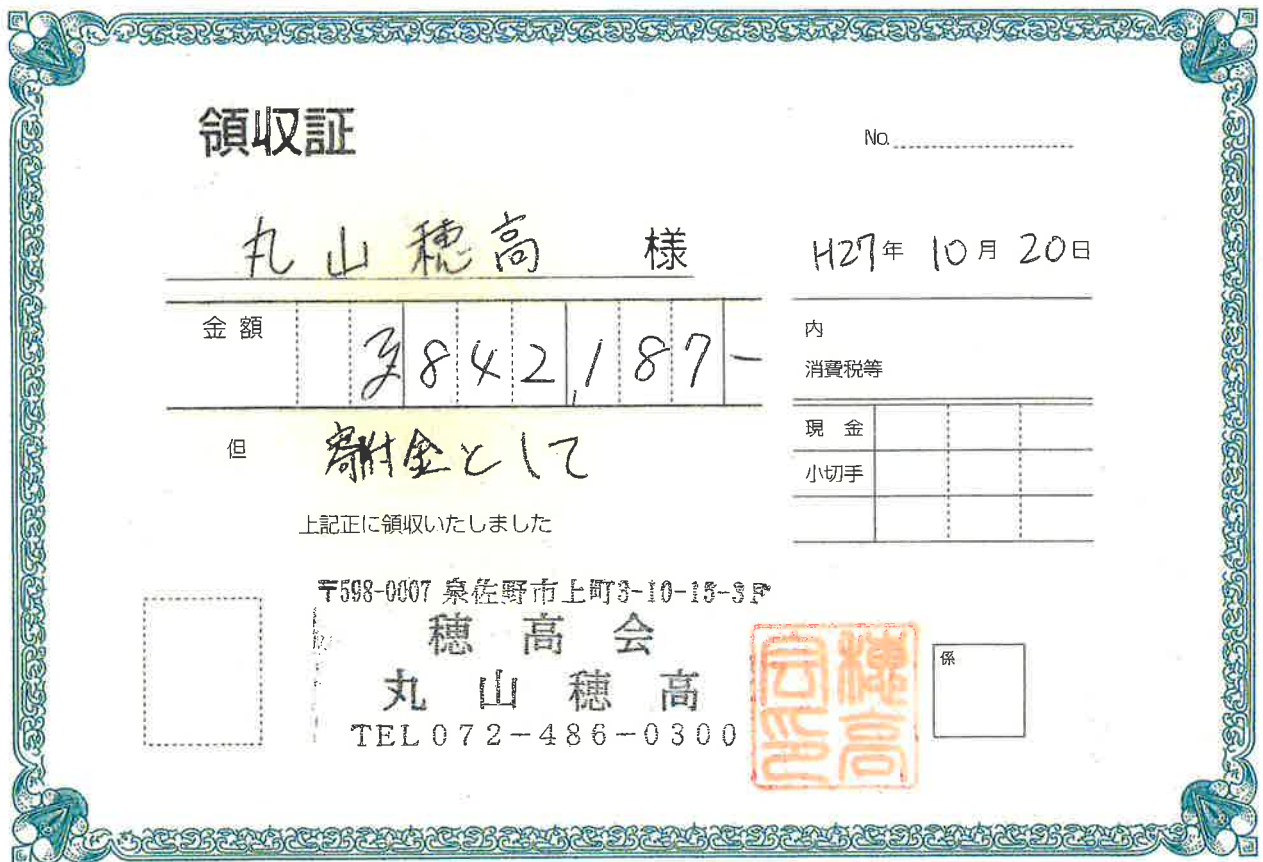 領収証
No.
丸山穂高 様
H27年 10月 20日
金額 ¥842,187-
内
消費税等
現金
小切手
但 寄附金として
上記正に領収いたしました
〒598-0007 泉佐野市上町3-10-15-3F
穂高会
丸山穂高
TEL072-486-0300
穂高会印
係